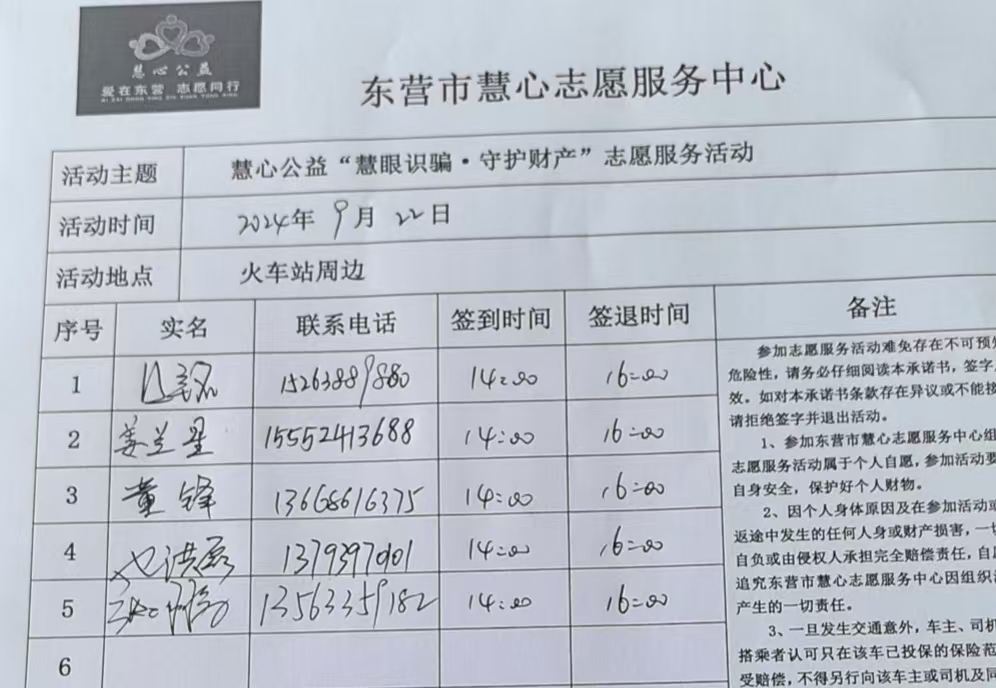 慧心公益
爱在东营 志愿同行
东营市慧心志愿服务中心
活动主题 慧心公益“慧眼识骗·守护财产”志愿服务活动
活动时间 2024年 9月 22日
活动地点 火车站周边
序号 实名 联系电话 签到时间 签退时间 备注
1 15263889880 14:00 16:00
2 姜兰星 15552413688 14:00 16:00
3 董锋 13668616375 14:00 16:00
4 14:00 16:00
5 13563359182 14:00 16:00
6
参加志愿服务活动难免存在不可预
危险性，请务必仔细阅读本承诺书，签字
效。如对本承诺书条款存在异议或不能接
请拒绝签字并退出活动。
1、参加东营市慧心志愿服务中心组
志愿服务活动属于个人自愿，参加活动要
自身安全，保护好个人财物。
2、因个人身体原因及在参加活动或
返途中发生的任何人身或财产损害，一切
自负或由侵权人承担完全赔偿责任，自
追究东营市慧心志愿服务中心因组织
产生的一切责任。
3、一旦发生交通意外，车主、司机
搭乘者认可只在该车已投保的保险范
受赔偿，不得另行向该车主或司机及同